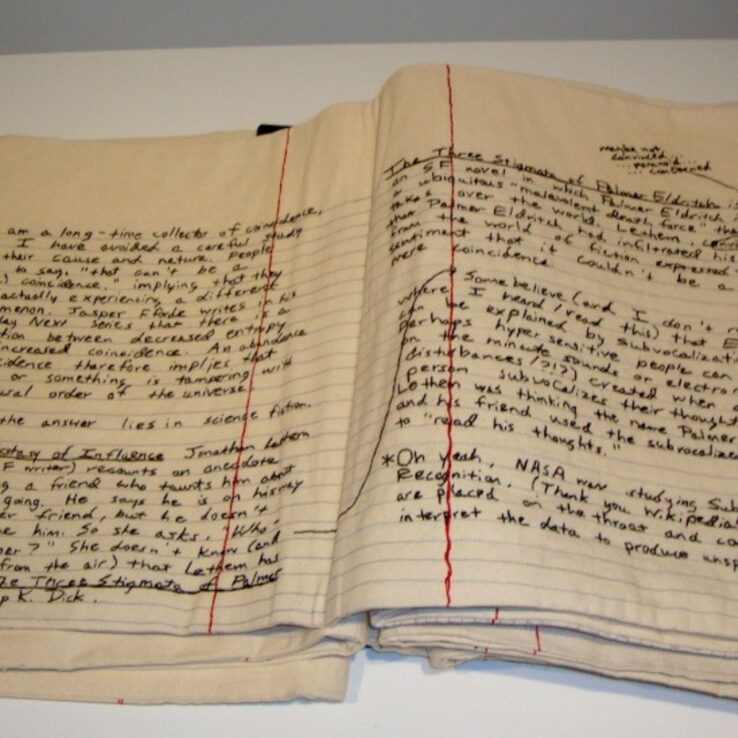 am a long-time collector of coincidence,
I have avoided a careful study
their cause and nature. People
to say, "that can't be a
coincidence." implying that they
actually experiencing a different
menon. Jasper Fforde writes in his
day Next series that there is a
tion between decreased entropy
increased coincidence. An abundance
cidence therefore implies that
or something is tampering with
ural order of the universe.
the answer lies in science fiction.
cstasy of Influence Jonathan Lethem
F writer) recounts an anecdote
g a friend who taunts him about
going. He says he is on his way
er friend, but he doesn't
me him. So she asks, "Who,
mer?" She doesn't know (and
from the air) that Lethem has
he Three Stigmata of Palmer
p K. Dick.
maybe not
convinced...
...paranoid...
...concerned
The Three Stigmata of Palmer Eldritch is
an SF novel in which Palmer Eldritch i
a ubiquitous "malevolent death force" tha
takes over the world. Lethem, convi
that Palmer Eldritch had infiltrated his
from the world of fiction expressed
sentiment that it couldn't be a
mere coincidence.
Some believe (and I don't r
where I heard/read this) that E
can be explained by subvocalizati
perhaps hyper sensitive people can
on the minute sounds or electro
disturbances (?!?) created when a
person subvocalizes their thought
Lethem was thinking the name Palmer
and his friend used the subvocalize
to "read his thoughts."
*Oh yeah, NASA was studying Sub
Recognition. (Thank you Wikipedia
are placed on the throat and co
interpret the data to produce unsp